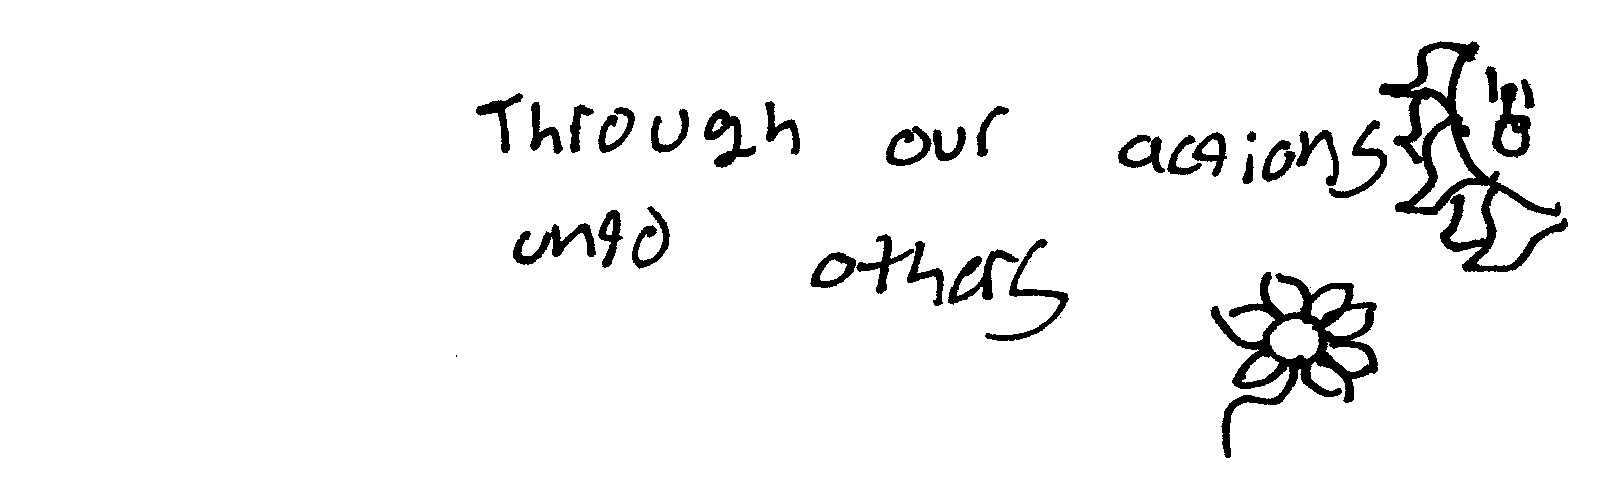 Through our actions
unto others